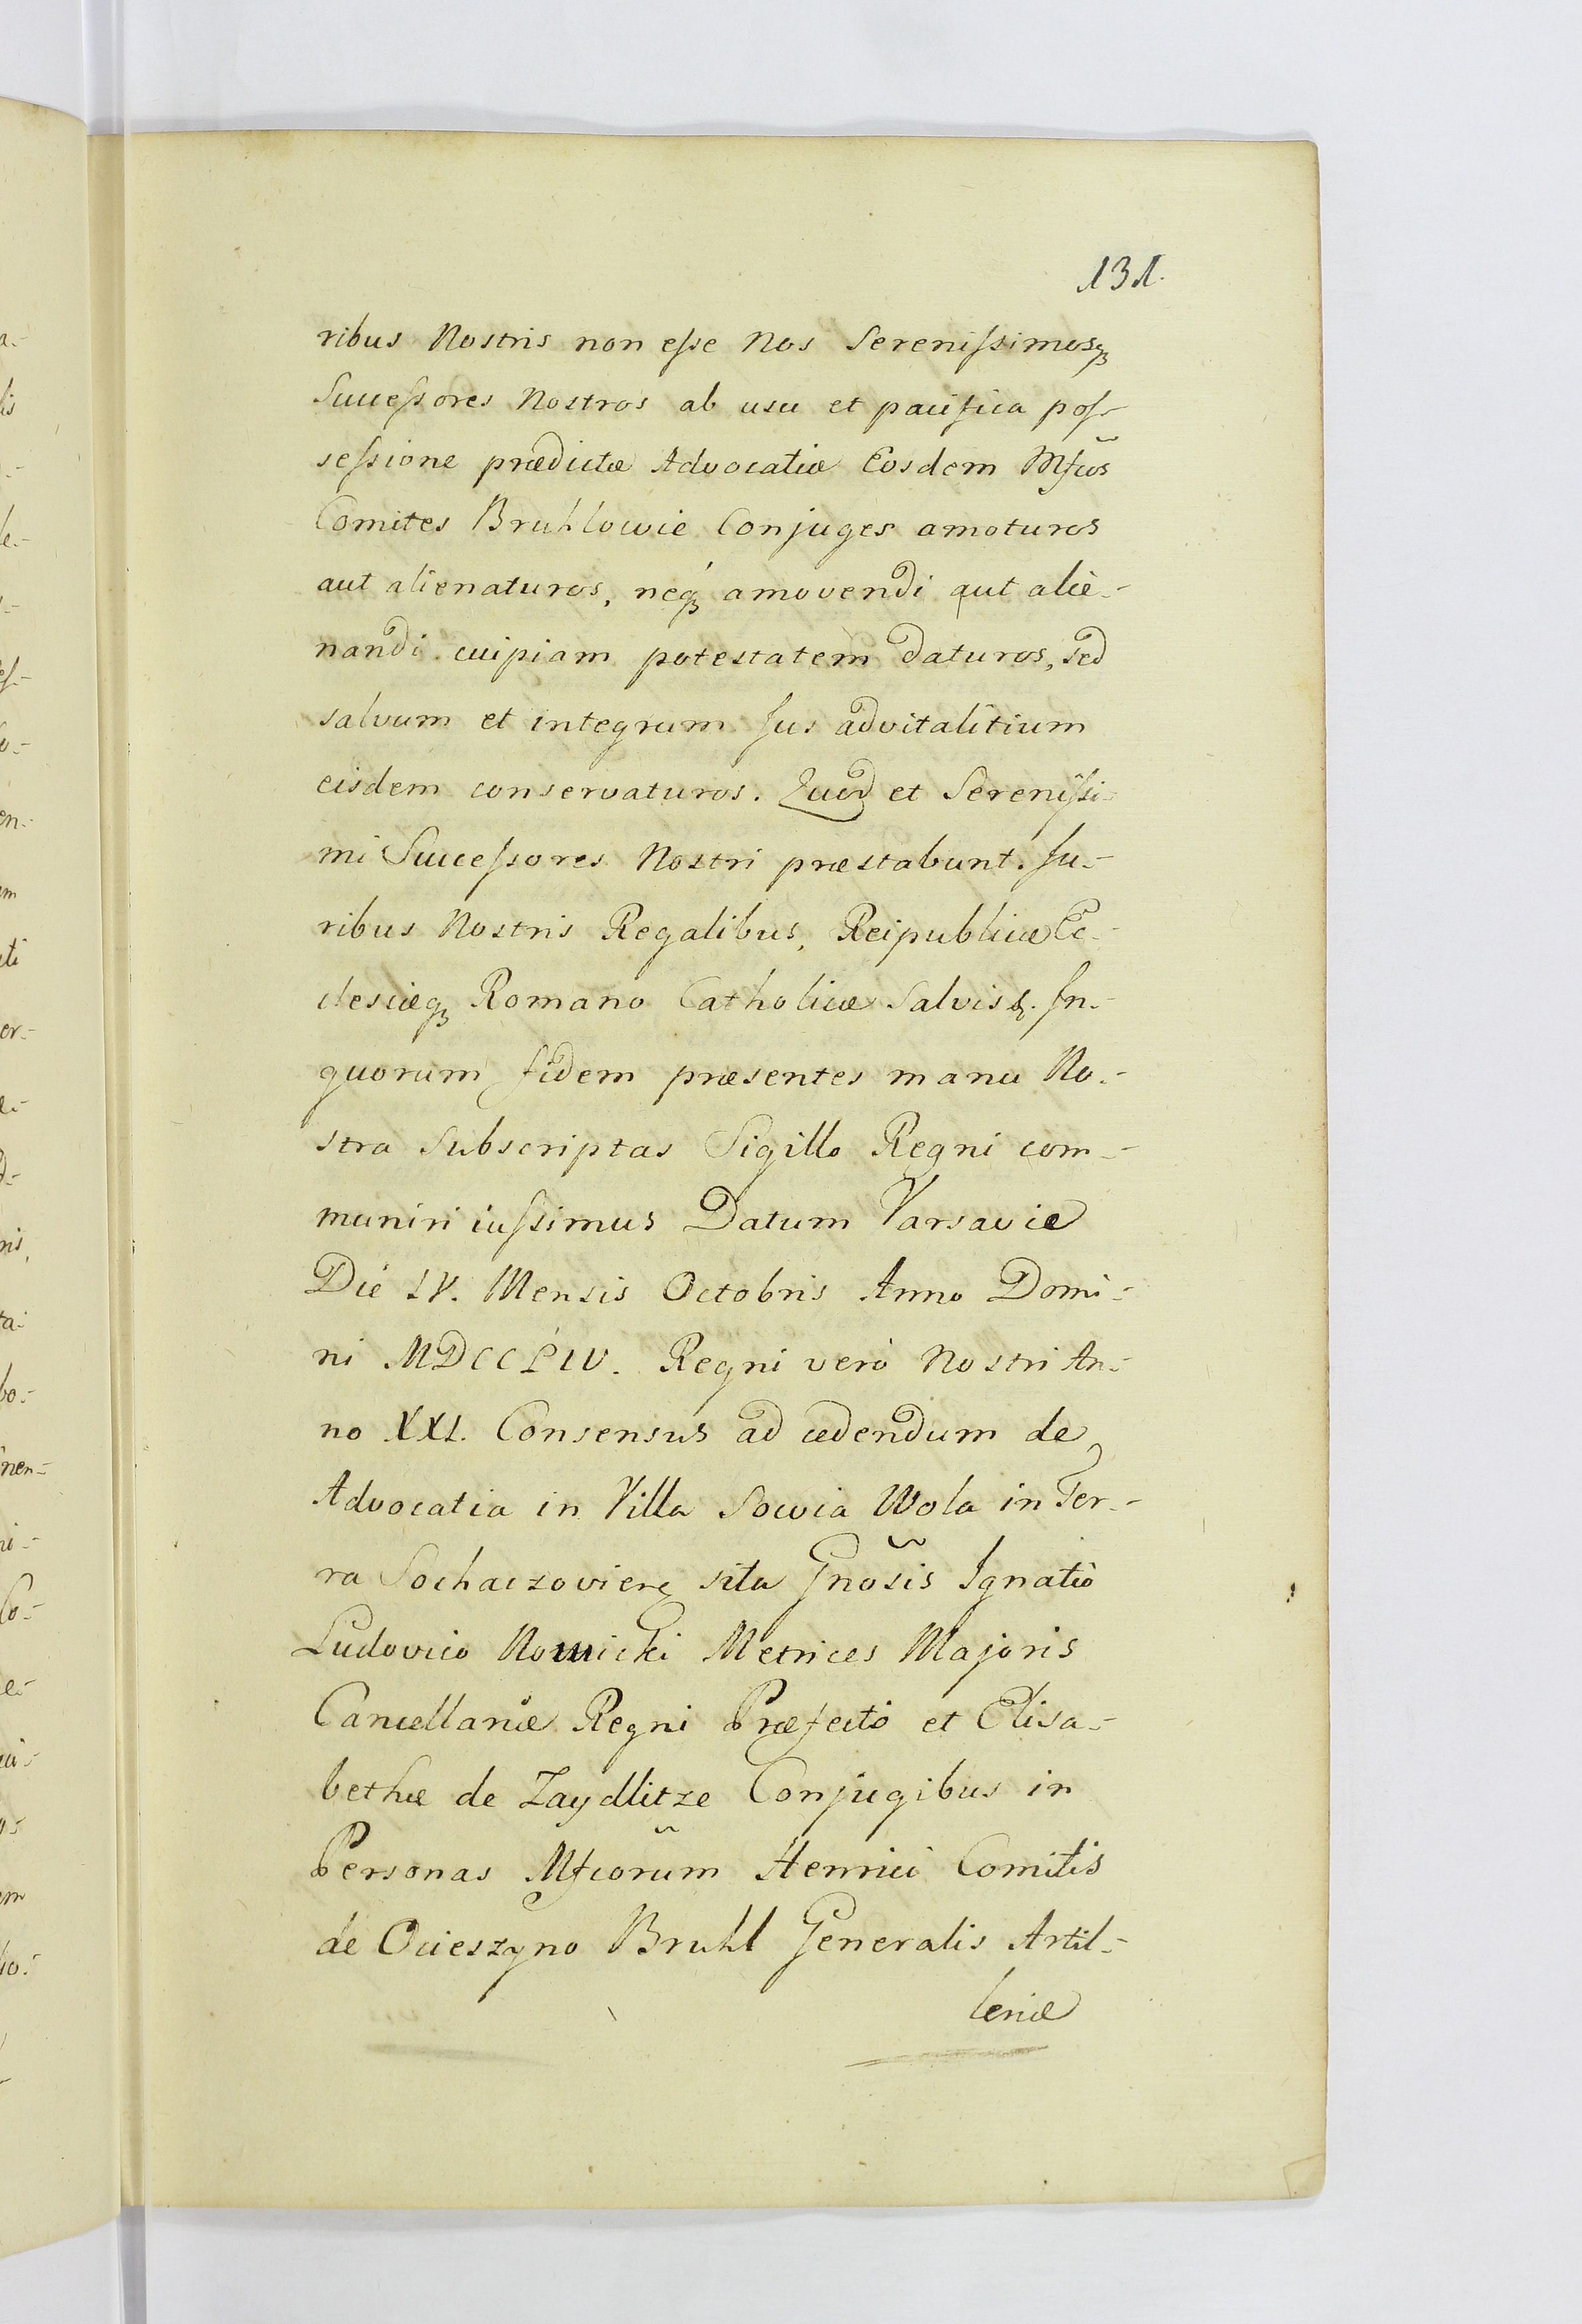 131.
ribus Nostris non eſse Nos Sereniſsimosqꝫ
Succeſsores Nostros ab usu et pacifica poſ-
seſsione prædictæ Advocatiæ Eosdem Mfcos̃
Comites Bruhlowie Conjuges amoturos
aut alienaturos, neqꝫ amovendi aut alie-
nandi cuipiam potestatem daturos, sed
salvum et integrum Jus advitalitium
eisdem conservaturos. Quod et Sereniſsi-
mi Succeſsores Nostri præstabunt. Ju-
ribus Nostris Regalibus, Reipublicæ Ec-
clesiæqꝫ Romano Catholicæ Salvis &. In-
quorum fidem præsentes manu No-
stra Subscriptas Sigillo Regni com-
muniri iuſsimus Datum Varsaviæ
Die IV. Mensis Octobris Anno Domi-
ni MDCCLIV. Regni verò Nostri An-
no XXI. Consensus ad cedendum de
Advocatia in Villa Sowia Wola in Ter-
ra Sochaczovien̄ sita Gnosis̃ Ignatio
Ludovico Nowicki Metrices Majoris
Cancellariæ Regni Præfecto et Elisa-
bethæ de Zaydlitze Conjugibus in
Personas Mfcorũm Henrici Comitis
de Ocieszyno Bruhl Generalis Artil-
leriæ